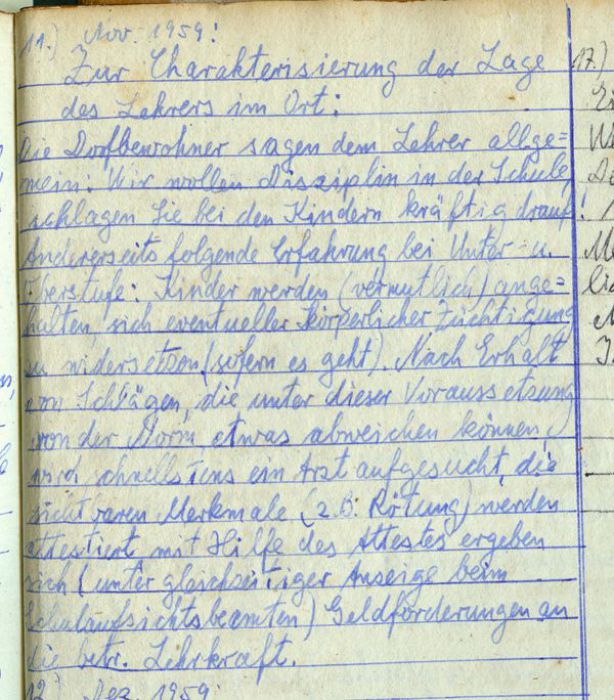 11.) Nov. 1959:
Zur Charakterisierung der Lage
des Lehrers im Ort:
Die Dorfbewohner sagen dem Lehrer allge=
mein: Wir wollen Disziplin in der Schule,
schlagen Sie bei den Kindern kräftig drauf!
Andererseits folgende Erfahrung bei Unter- u.
Oberstufe: Kinder werden (vermutlich) ange=
halten, sich eventueller körperlicher Züchtigung
zu widersetzen (sofern es geht). Nach Erhalt
von Schlägen, die unter dieser Voraussetzung
von der Norm etwas abweichen können,
wird schnellstens ein Arzt aufgesucht, die
sichtbaren Merkmale (z.B. Rötung) werden
attestiert mit Hilfe des Attestes ergeben
sich (unter gleichzeitiger Anzeige beim
Schulaufsichtsbeamten) Geldforderungen an
die betr. Lehrkraft.
12.) Dez. 1959:
17.)